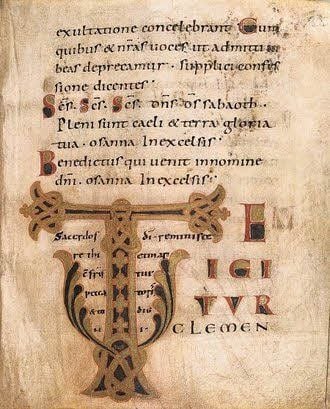 exultatione concelebrant Cum
quibus & nr̄as uoces ut admitti iu
beas deprecamur · supplici confes
sione dicentes ·
Sc̄s · Sc̄s · Sc̄s · dn̄s ds̄ sabaoth ·
Pleni sunt caeli & terra gloria
tua · osanna In excelsis ·
Benedictus qui uenit innomine
dn̄i · osanna In excelsis ·
TE
IGI
TUR
CLEMEN
Sacerdos